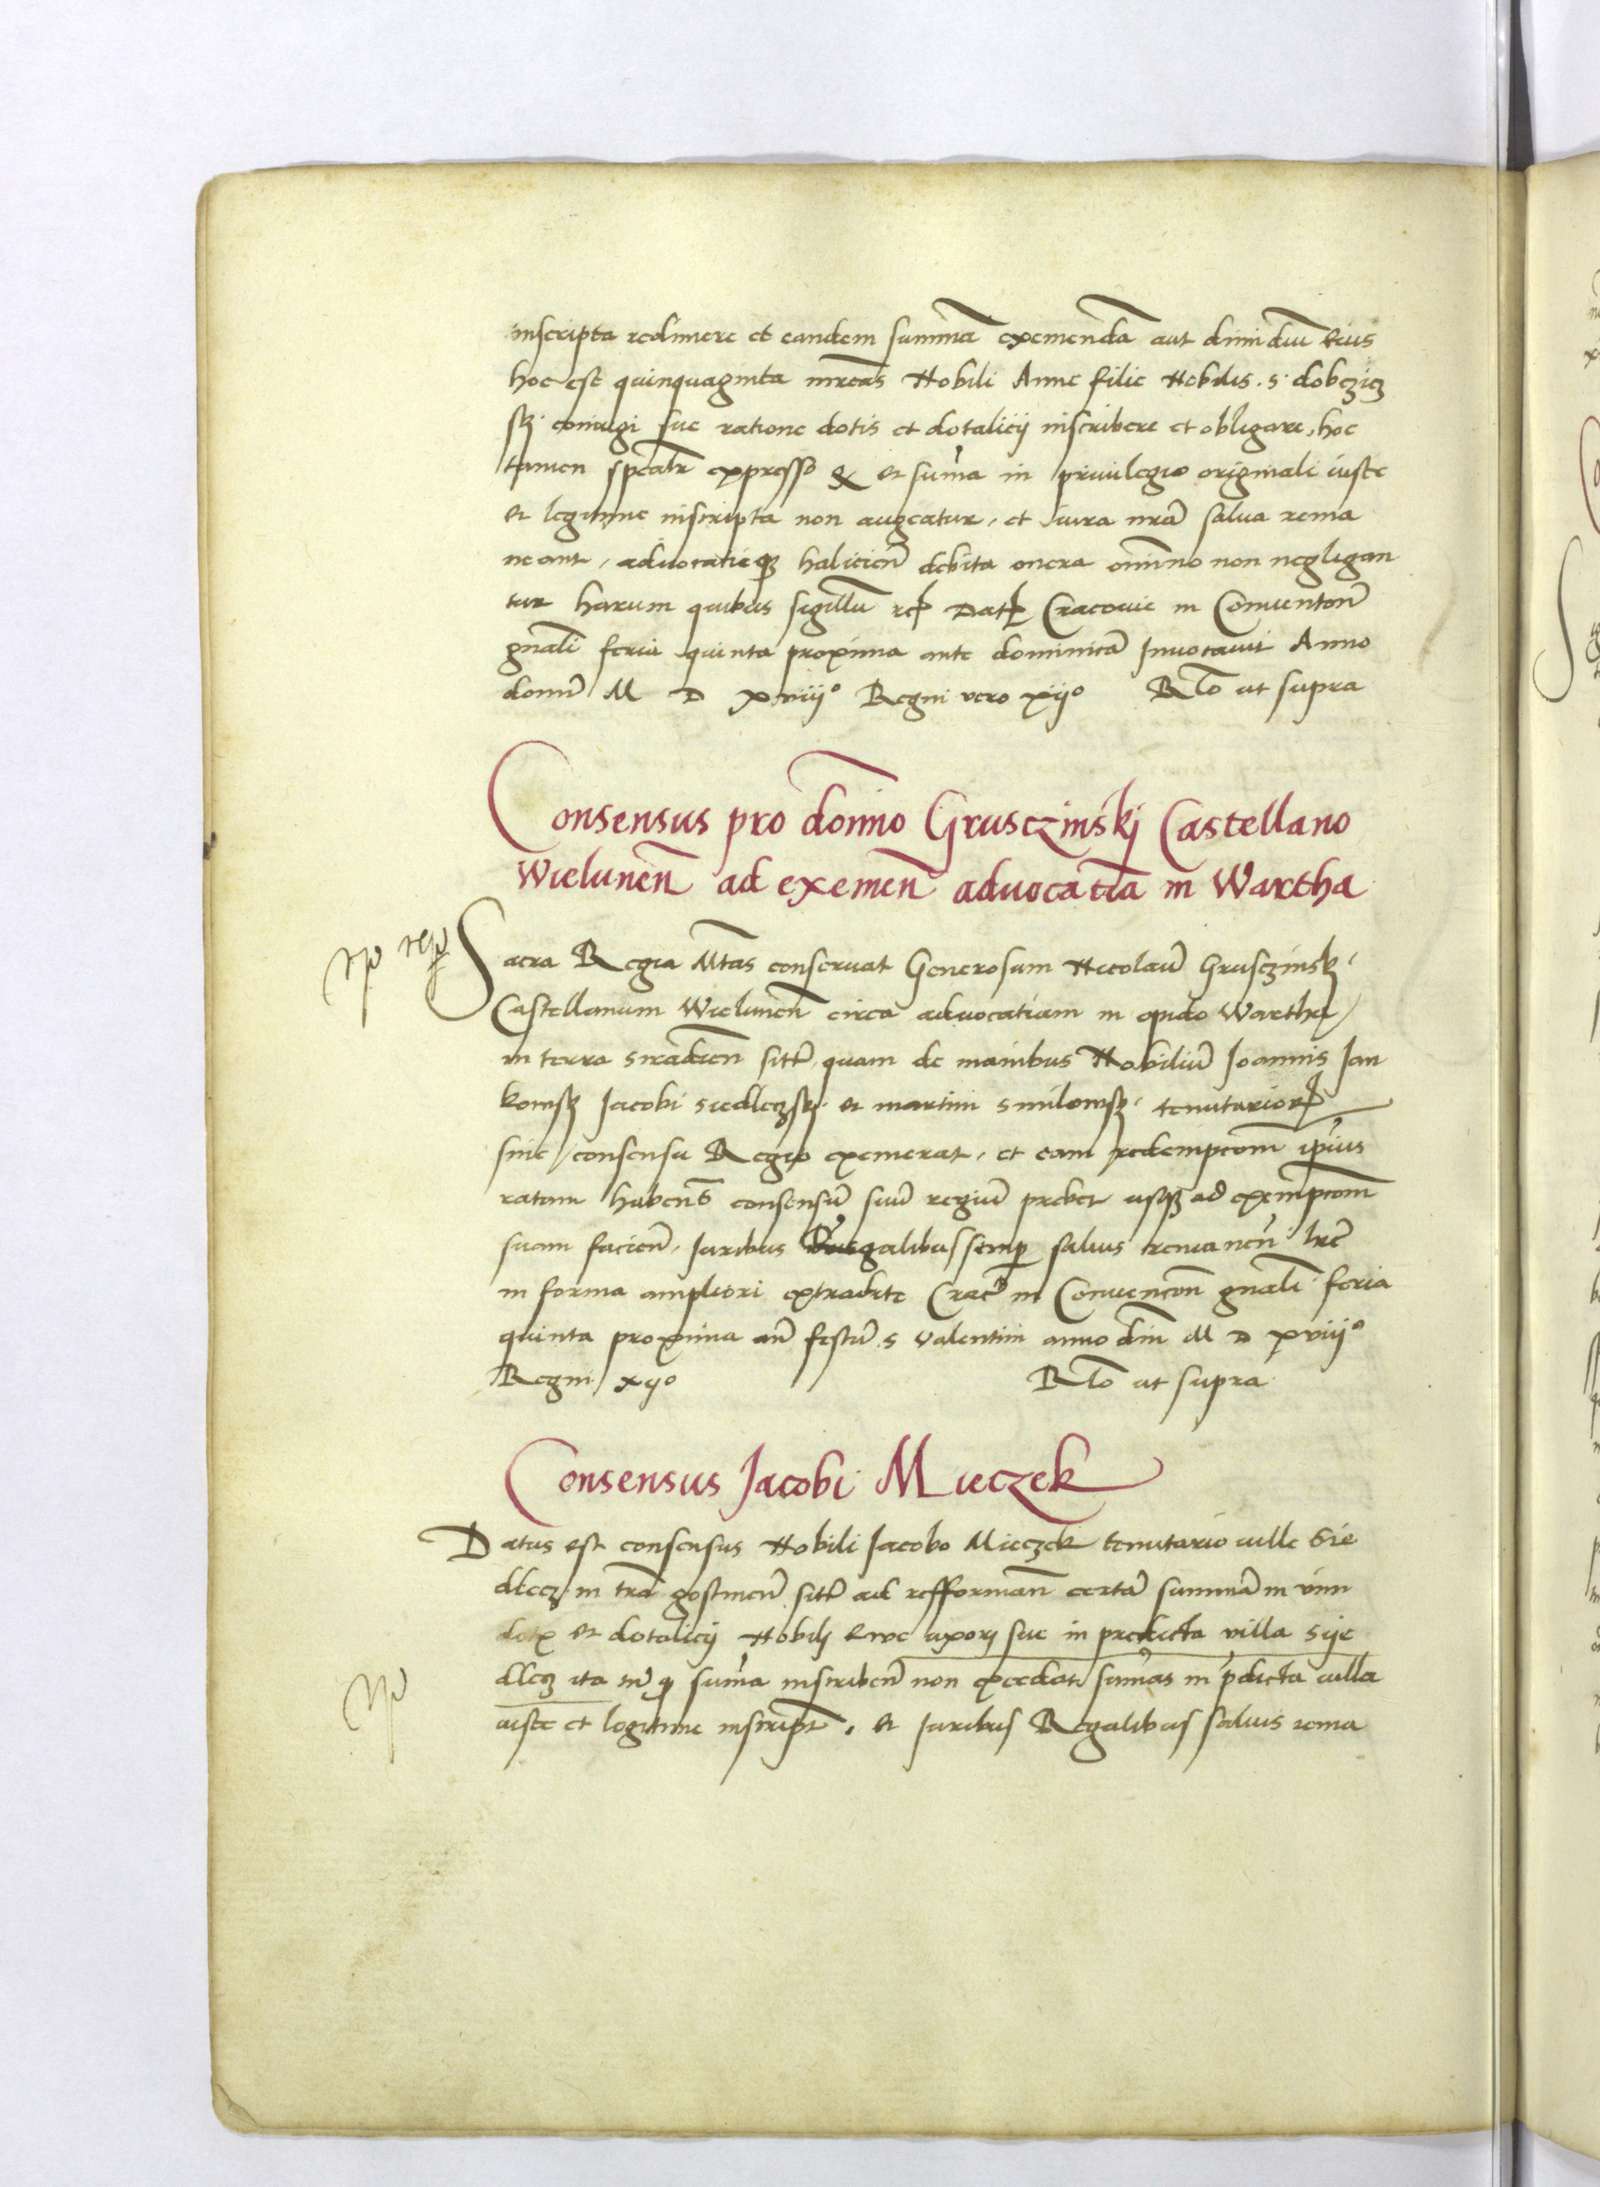 inscripta redimere et eandem summã exemendã aut dimidiũ eius
hoc est quinquaginta mrcas Nobili Anne filie Nobilis . S . dobczicz
sz coniugi sue ratione dotis et dotalicij inscribere et obligare, hoc
tamen spealr expresso qꝫ et suma in priuilegio originali iuste
et legitime inscripta non augeatur, et iura nrã salua rema
neant, aduocatieqꝫ halicien debita onera omnino non negligan
tur harum quibus sigillũ Dat Cracouie in Conuention
gnali feria quinta proxima ante dominicã Inuocauit Anno
domi M D xviij° Regni vero xij° Rlo ut supra
Consensus pro domino Grusczinskj Castellano
Wielunen ad exemen aduocatiã in Wartha
Sacra Regia Mtas conseruat Generosum Nicolaũ Grusczinsk
Castellanum Wielunen circa aduocatiam in opido Wartha
in terra Siradien sitt quam de manibus Nobiliũ Joannis Jan
kowsz Jacobi Siedleczsz et martini Smilowsz tenutarior
sine consensu Regio exemerat, et eam redempcom iprius
ratam habens consensũ suũ regiũ prebet usqꝫ ad exempcom
suam facien, Juribus galibus semp saluis remanen lre
in forma ampliori extradite Crac in Conuencon gnali feria
quinta proxima an festũ S valentini anno din M D xviij°
Regni xij° Rlo ut supra
Consensus Jacobi Mieczek
Datus est consensus Nobili Jacobo Mieczek tenutario uille Sie
dlecz in tra gostinen sitt ad refforman certã summã in vim
dot et dotalicij Nobilj Ewe uxorj sue in predicta villa Sije
dlecz ita tn qꝫ suma inscriben non excedat sumas in pdicta uilla
iuste et legitime inscript, et Juribus Regalibus saluis rema